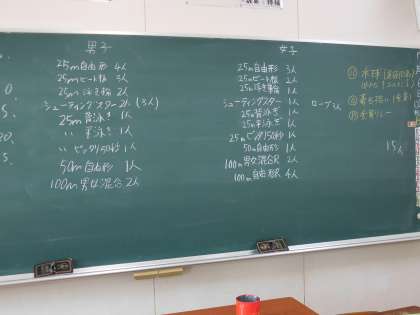 男子
25m自由形 4人
25mビート板 3人
25m浮き輪 2人
シューティングスター 2人 (3人)
25m背泳ぎ 1人
〃 平泳ぎ 1人
〃 ピッタリ50秒 1人
50m自由形 1人
100m男女混合 2人
女子
25m自由形 3人
25mビート板 2人
25m浮き輪 1人
シューティングスター 1人
25m背泳ぎ 1人
25m平泳ぎ 1人
25mピッタリ50秒 1人
50m自由形 1人
100m男女混合R 2人
100m自由形R 4人
ロープ2人
水球
15人